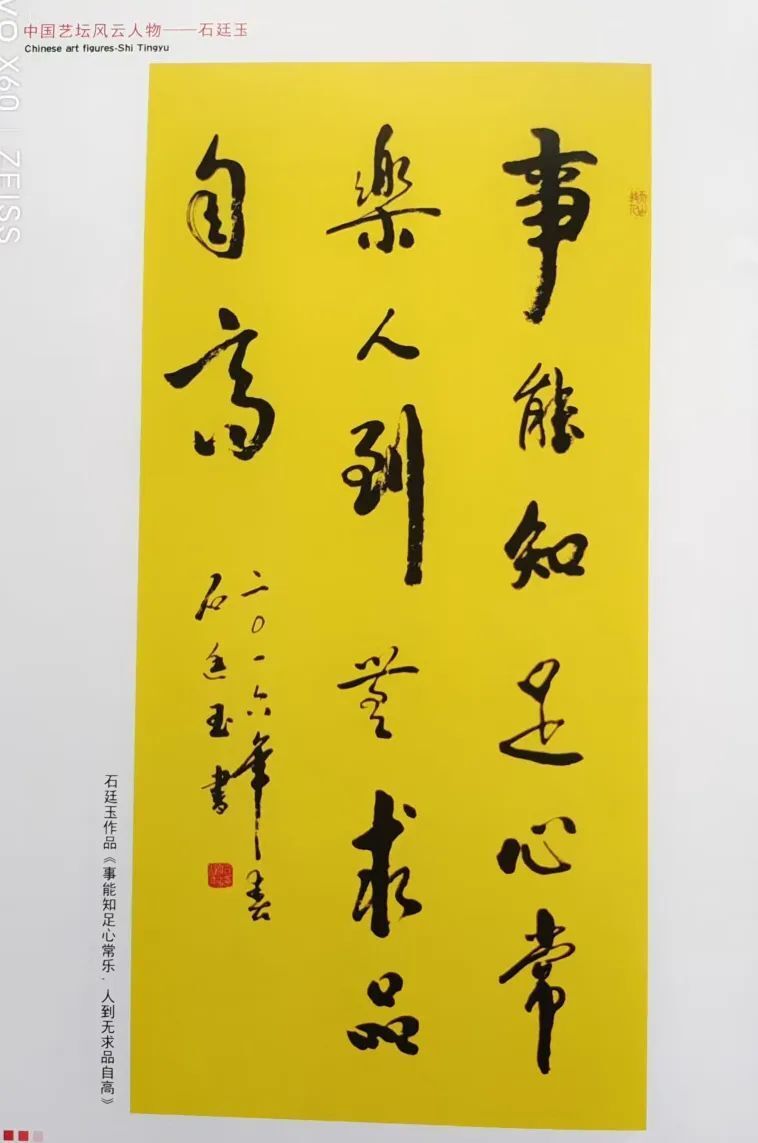 中国艺坛风云人物——石廷玉
Chinese art figures-Shi Tingyu
VO X60 | ZEISS
事能知足心常
樂人到無求品
自高
二〇一六年春
石廷玉書
石廷玉作品《事能知足心常乐．人到无求品自高》